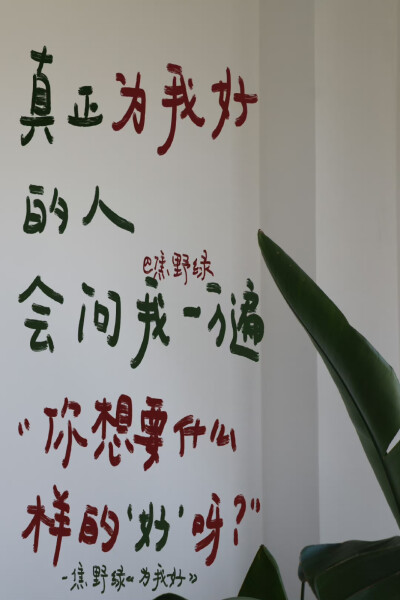 真正为我好
的人
@焦野绿
会问我一万遍
“你想要什么
样的‘好’呀?”
-焦野绿《为我好》